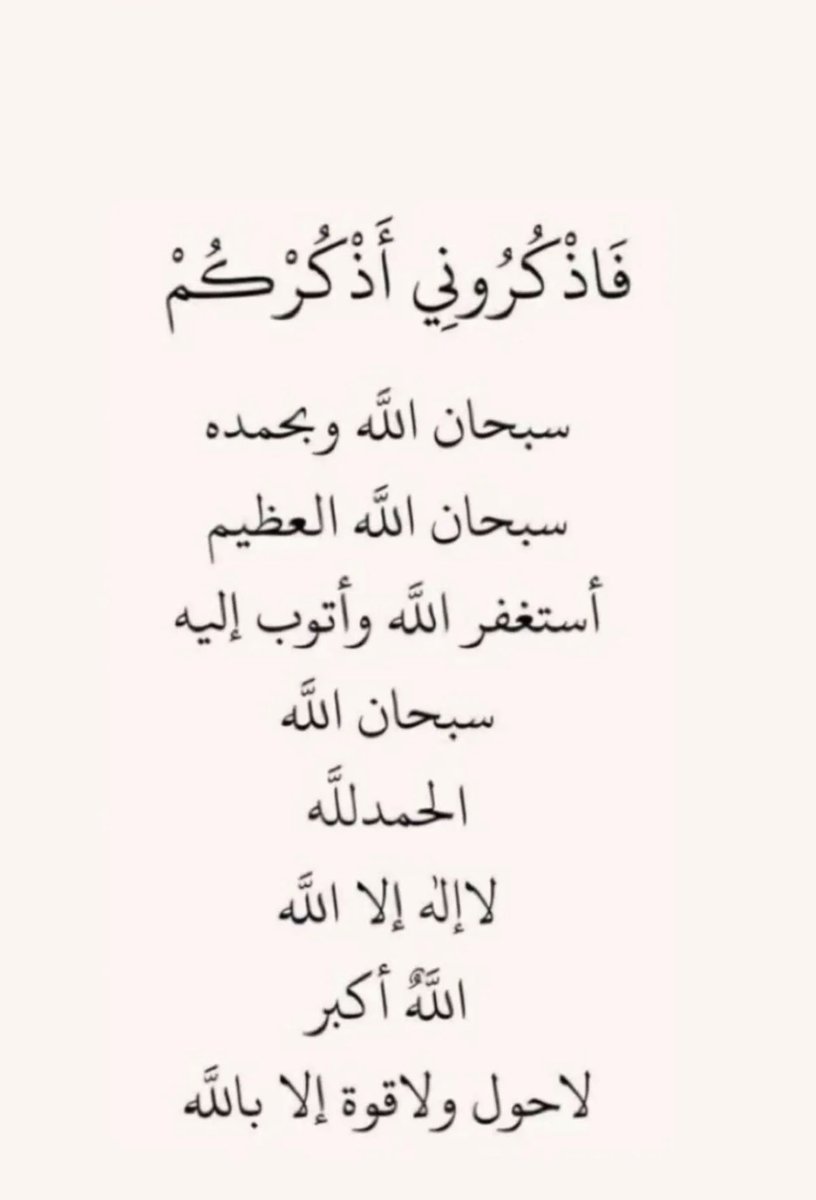 فَاذْكُرُونِي أَذْكُرْكُمْ
سبحان اللَّه وبحمده
سبحان اللَّه العظيم
أستغفر اللَّه وأتوب إليه
سبحان اللَّه
الحمدللَّه
لاإلٰه إلا اللَّه
اللَّهٌ أكبر
لاحول ولاقوة إلا باللَّه